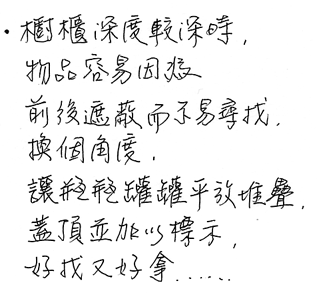 •櫥櫃深度較深時,
物品容易因為
前後遮蔽而不易尋找.
換個角度,
讓瓶瓶罐罐平放堆疊,
蓋頂並加以標示,
好找又好拿......